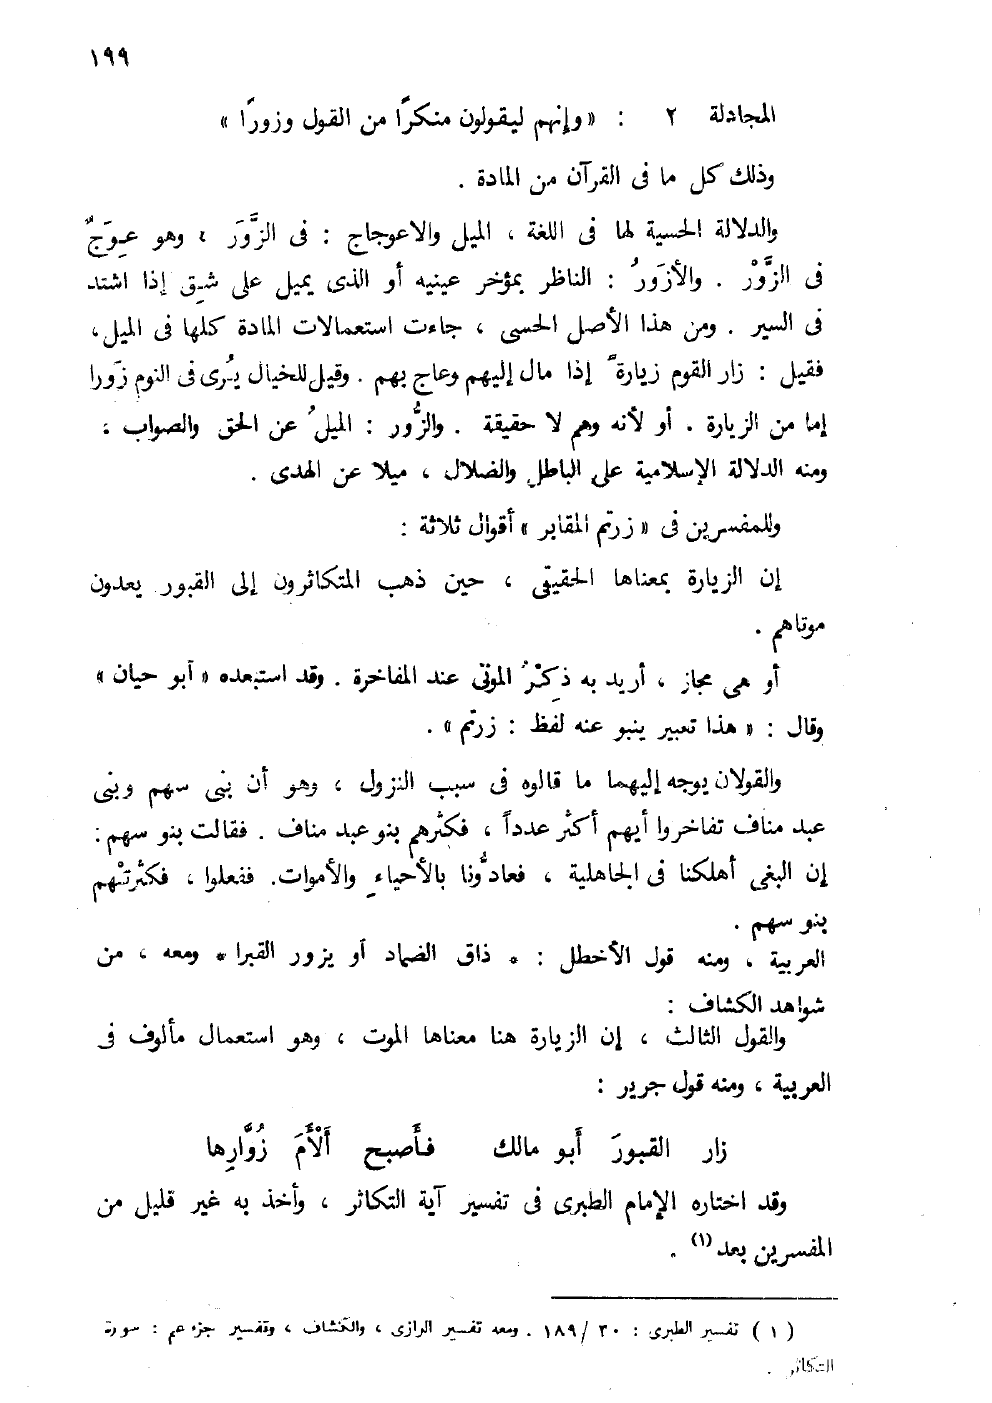 ١٩٩
المجادلة ٢ : « وإنهم ليقولون منكرًا من القول وزورًا »
وذلك كل ما فى القرآن من المادة .
والدلالة الحسية لها فى اللغة ، الميل والاعوجاج : فى الزَّوَر ، وهو عِوَجٌ
فى الزَّوْر . والأزوَرُ : الناظر بمؤخر عينيه أو الذى يميل على شِق إذا اشتد
فى السير . ومن هذا الأصل الحسى ، جاءت استعمالات المادة كلها فى الميل ،
فقيل : زار القوم زيارة ً إذا مال إليهم وعاج بهم . وقيل للخيال يُرى فى النوم زَورا
إما من الزيارة . أو لأنه وهم لا حقيقة . والزُّور : الميلُ عن الحق والصواب ،
ومنه الدلالة الإسلامية على الباطل والضلال ، ميلا عن الهدى .
وللمفسرين فى « زرتم المقابر » أقوال ثلاثة :
إن الزيارة بمعناها الحقيقى ، حين ذهب المتكاثرون إلى القبور يعدون
موتاهم .
أو هى مجاز ، أريد به ذِكْرُ الموتى عند المفاخرة . وقد استبعده « أبو حيان »
وقال : « هذا تعبير ينبو عنه لفظ : زرتم » .
والقولان يوجه إليهما ما قالوه فى سبب النزول ، وهو أن بنى سهم وبنى
عبد مناف تفاخروا أيهم أكثر عدداً ، فكثرهم بنو عبد مناف . فقالت بنو سهم :
إن البغى أهلكنا فى الجاهلية ، فعادُّونا بالأحياءِ والأموات. ففعلوا ، فكثرتْهم
بنو سهم .
العربية ، ومنه قول الأخطل : * ذاق الضماد أو يزور القبرا * ومعه ، من
شواهد الكشاف :
والقول الثالث ، إن الزيارة هنا معناها الموت ، وهو استعمال مألوف فى
العربية ، ومنه قول جرير :
زار القبورَ أبو مالك فأصبح ألْأَمَ زُوَّارِها
وقد اختاره الإمام الطبرى فى تفسير آية التكاثر ، وأخذ به غير قليل من
المفسرين بعد (١) .
( ١ ) تفسير الطبرى : ٣٠ /١٨٩ . ومعه تفسير الرازى ، والكشاف ، وتفسير جزء عم : سورة
التكاثر .